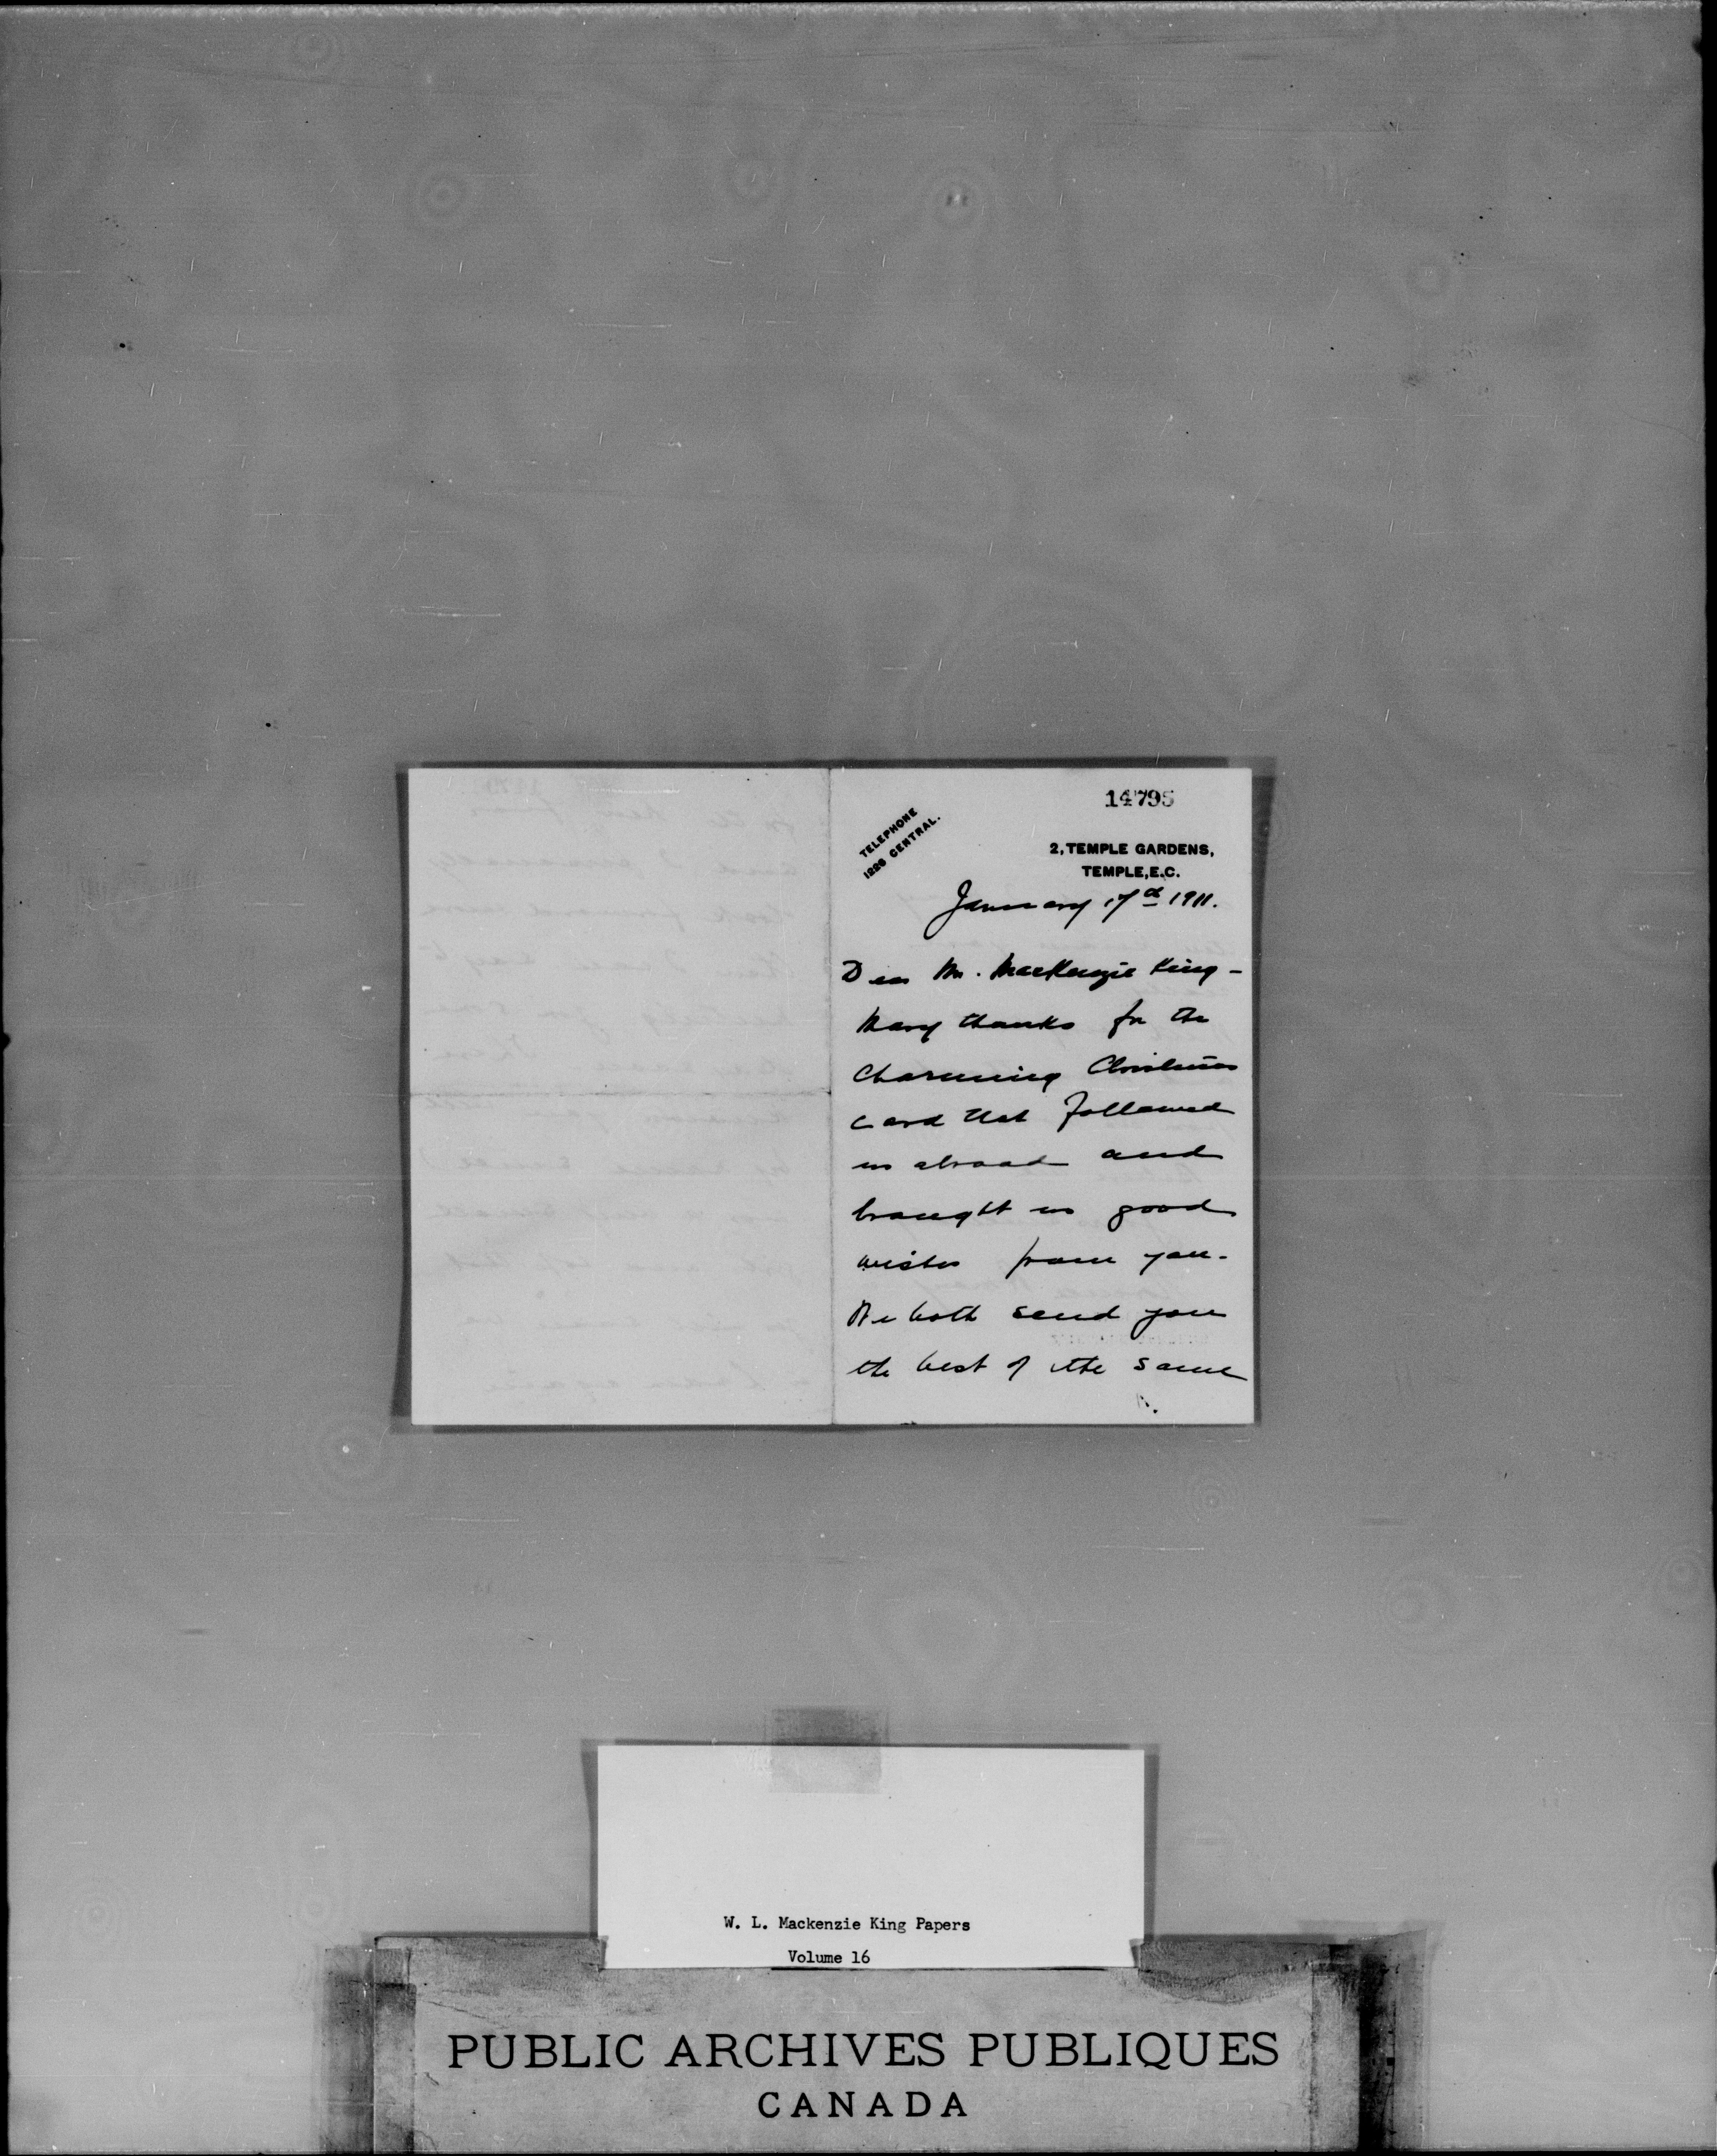 14795
TELEPHONE
1226 CENTRAL.
2, TEMPLE GARDENS,
TEMPLE, E.C.
January 17th 1911.
Dear Mr. MacKenzie King -
Many thanks for the
charming Christmas
card that followed
us abroad and
brought us good
wishes from you.
We both send you
the best of the same
W. L. Mackenzie King Papers
Volume 16
PUBLIC ARCHIVES PUBLIQUES
CANADA